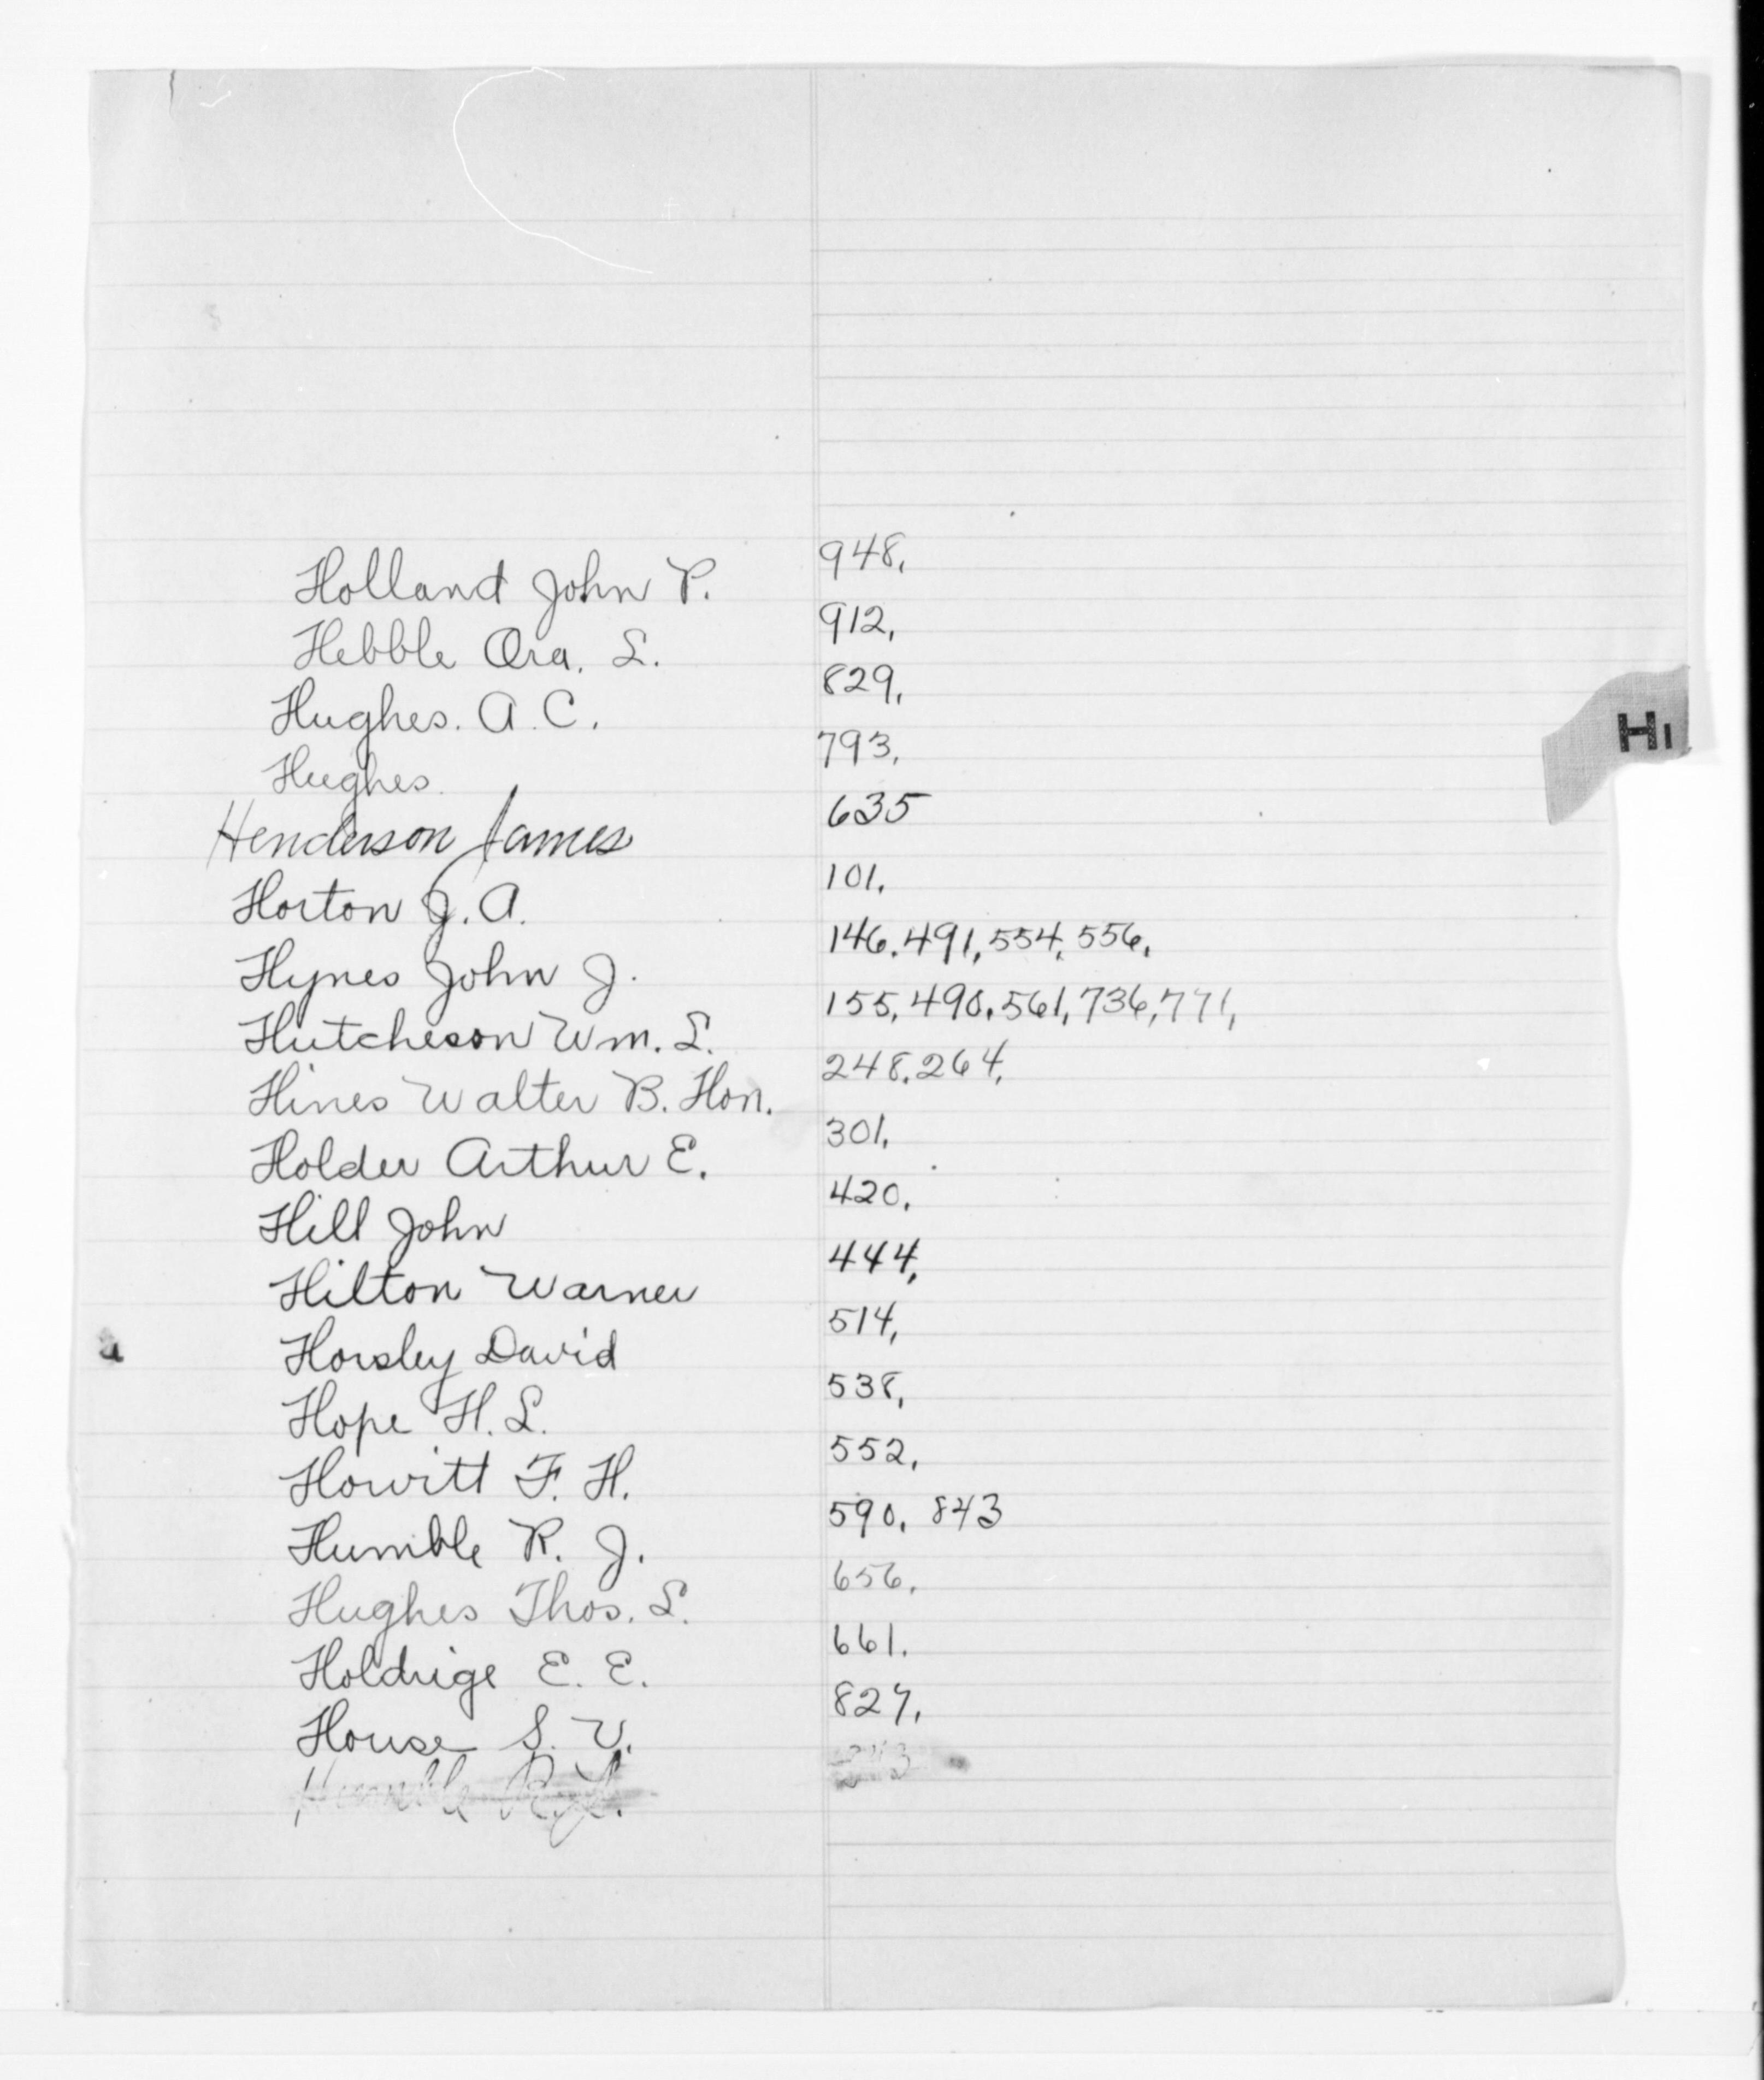 Holland John P. 948,
Hebble Ora. L. 912,
Hughes. A.C. 829,
Hughes. 793,
Hi
Henderson James 635
Horton J. A. 101,
Hynes John J. 146. 491, 554, 556,
Hutcheson Wm. L. 155, 490, 561, 736, 771,
Hines Walter B. Hon. 248. 264,
Holder Arthur E. 301,
Hill John 420,
Hilton Warner 444,
Horsley David 514,
Hope H. L. 538,
Howitt F. H. 552,
Humble R. J. 590, 843
Hughes Thos. L. 656,
Holdrige E. E. 661.
House S. V. 827,
Humble